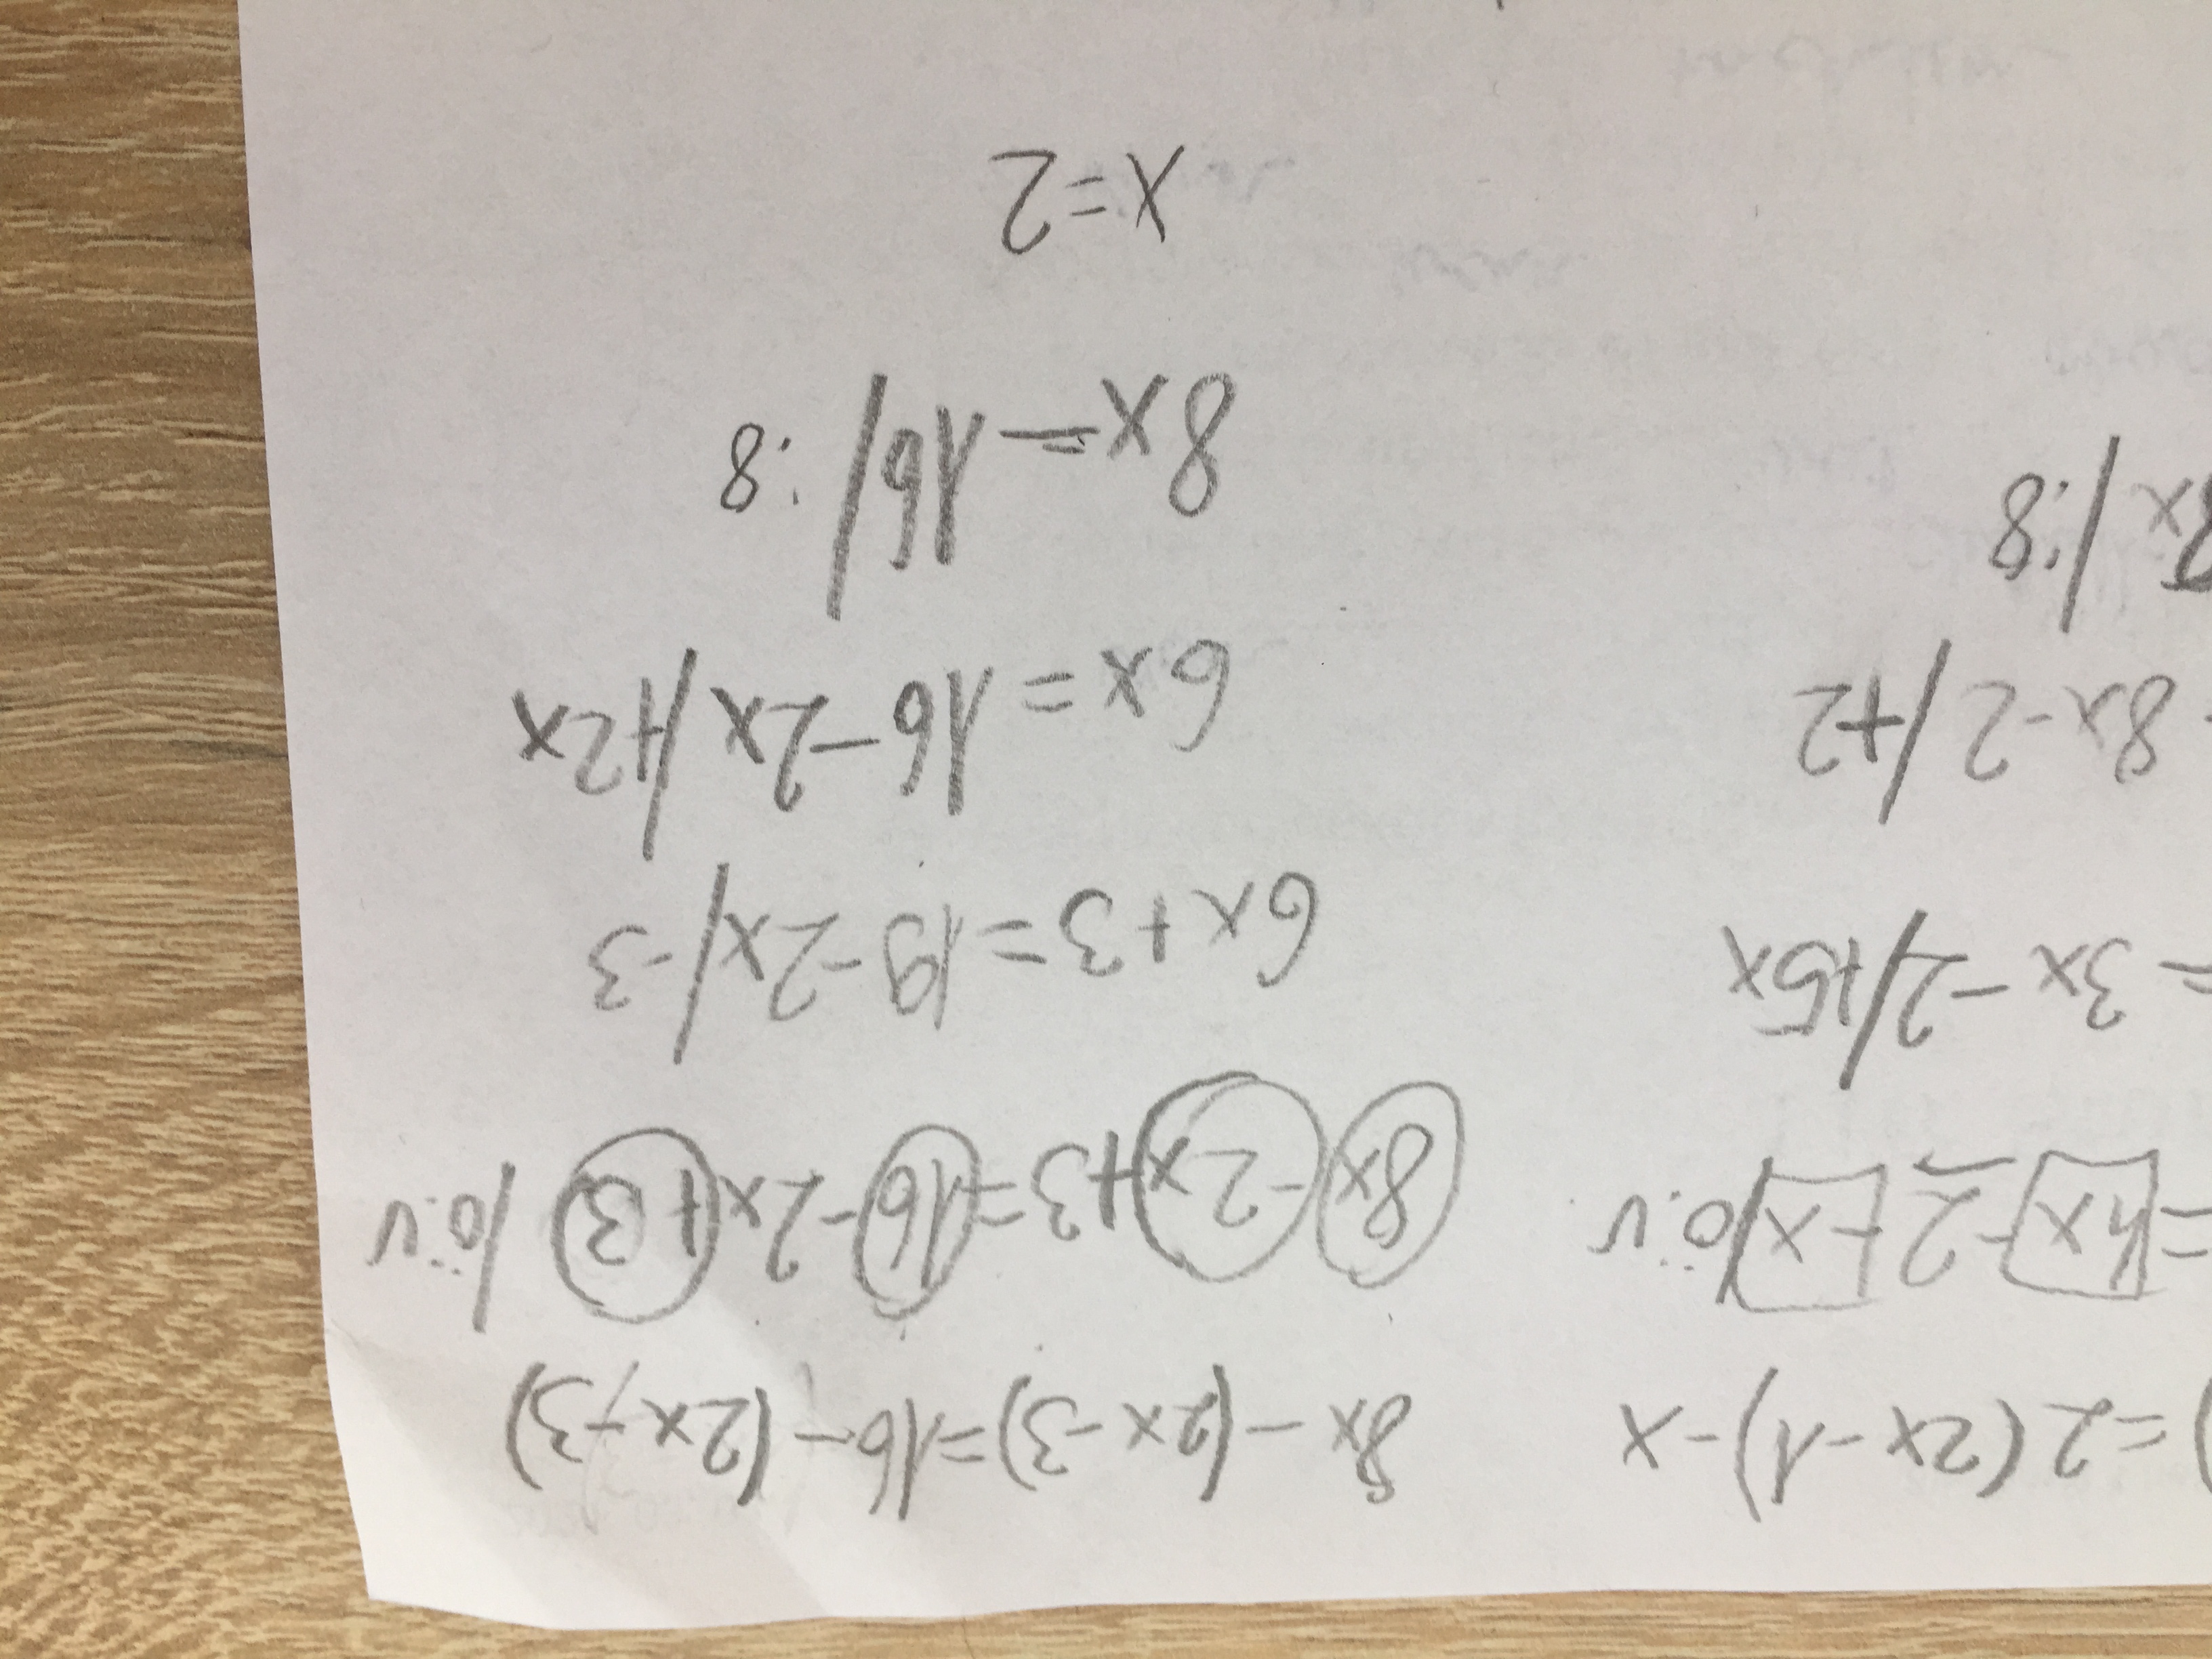 ) = 2(2x-1)-x
= 4x-2-x/o:v
= 3x-2/+5x
8x-2/+2
8x/:8
8x-(2x-3)=16-(2x-3)
8x-2x+3=16-2x+3/o:v
6x+3=19-2x/-3
6x=16-2x/+2x
8x=16/:8
x=2